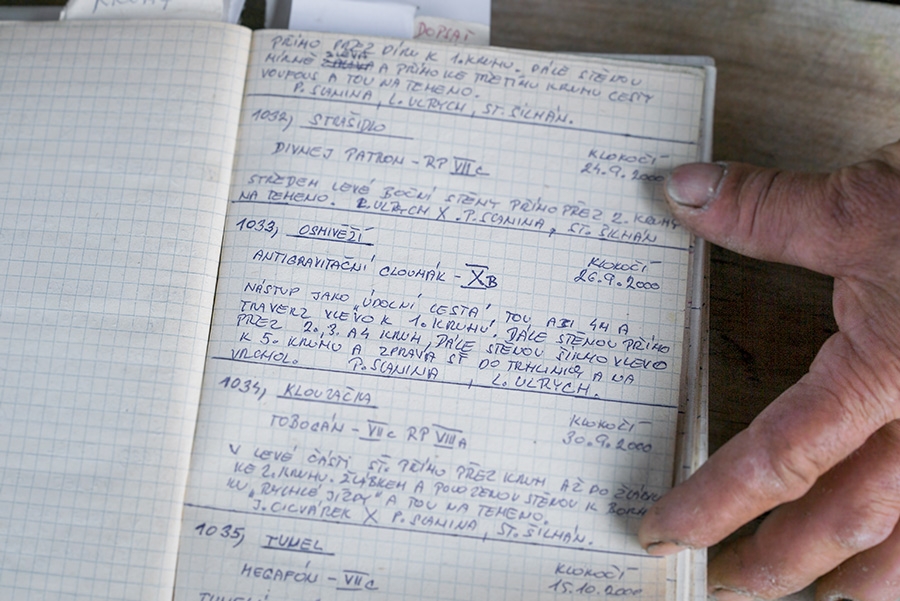 DOPSAT
PŘÍMO PŘEZ DÍRU K 1. KRUHU. DÁLE STĚNOU
MÍRNĚ A PŘÍMO KE TŘETÍMU KRUHU CESTY
VOUPOUS A TOU NA TEMENO.
P. SLANINA, L. ULRYCH, ST. ŠILHÁN.
1032, STRAŠIDLO
KLOKOČÍ
DIVNEJ PATRON - RP VIIC
24.9.2000
STŘEDEM LEVÉ BOČNÍ STĚNY PŘÍMO PŘEZ 2. KRUHY
NA TEMENO. L. ULRYCH X P. SLANINA, ST. ŠILHÁN
1033, OSMIVĚŽÍ
KLOKOČÍ
ANTIGRAVITAČNÍ ČLOUMÁK - XB
26.9.2000
NÁSTUP JAKO „ÚDOLNÍ CESTA", TOU ASI 4M A
TRAVERZ VLEVO K 1. KRUHU, DÁLE STĚNOU PŘÍMO
PŘEZ 2. 3. A 4 KRUH, DÁLE STĚNOU ŠIKMO VLEVO
K 5. KRUHU A ZPRAVA SE DO TRHLINKY A NA
VRCHOL. P. SLANINA, L. ULRYCH.
1034, KLOUZAČKA
KLOKOČÍ
TOBOGÁN - VIIC RP VIIIA
30.9.2000
V LEVÉ ČÁSTI ST. PŘÍMO PŘEZ KRUH AŽ DO ŽLÁBKU
KE 2. KRUHU. ŽLÁBKEM A POLOŽENOU STĚNOU K
„RYCHLÉ JÍZDY" A TOU NA TEMENO.
J. CICVÁREK X P. SLANINA, ST. ŠILHÁN.
1035, TUNEL
KLOKOČÍ
MEGAFÓN - VIIC
15.10.2000